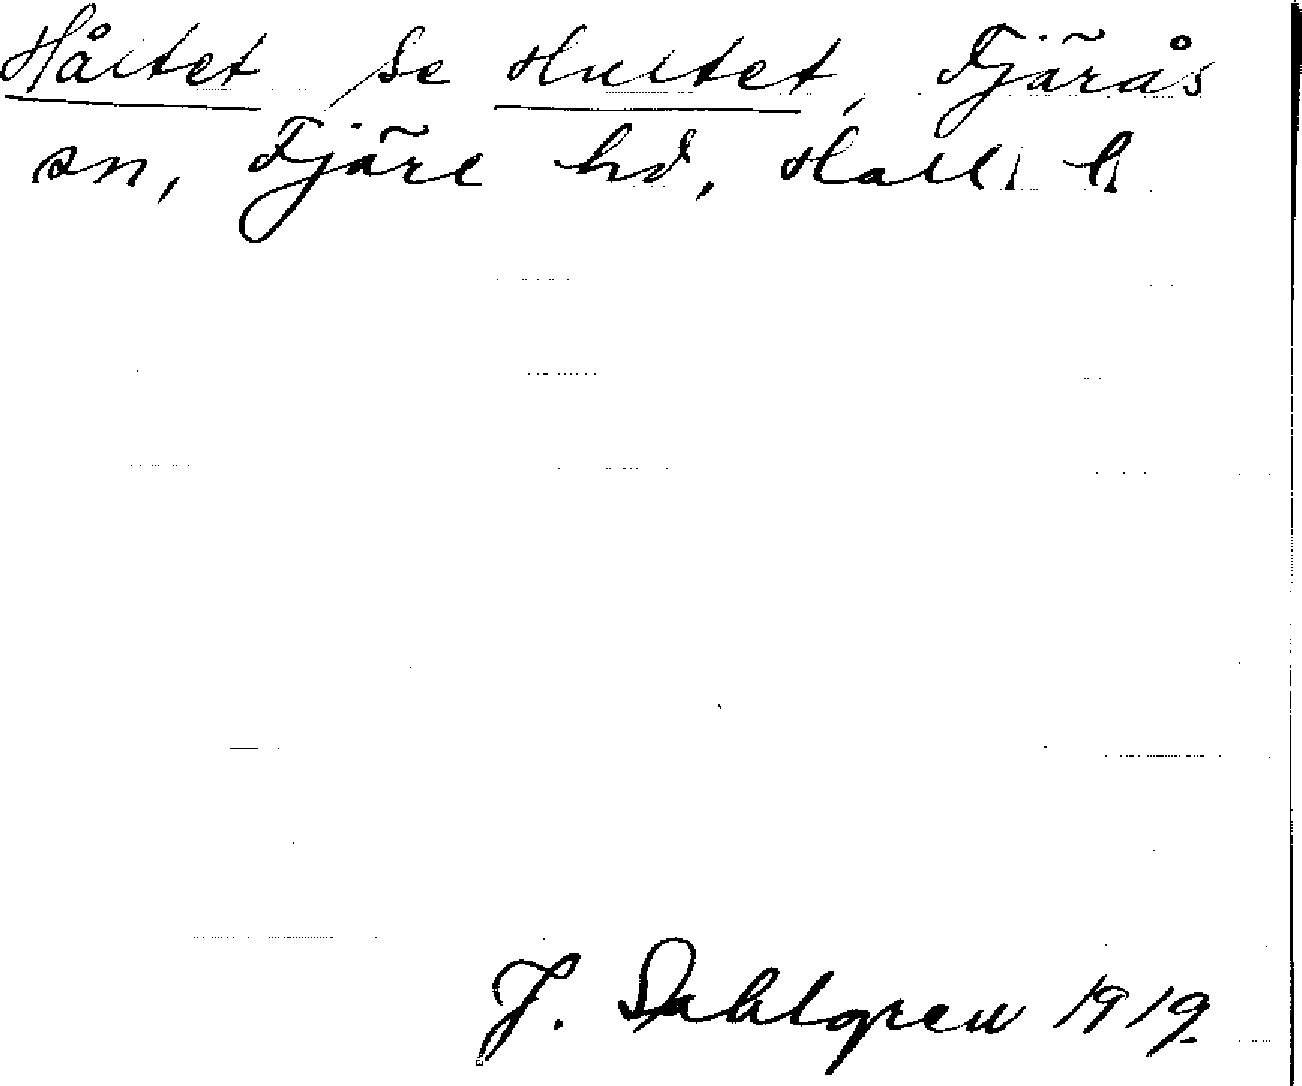 Håltet se Hultet, Fjärås
sn, Fjäre hd, Hall. l.
J. Sahlgren 1919.